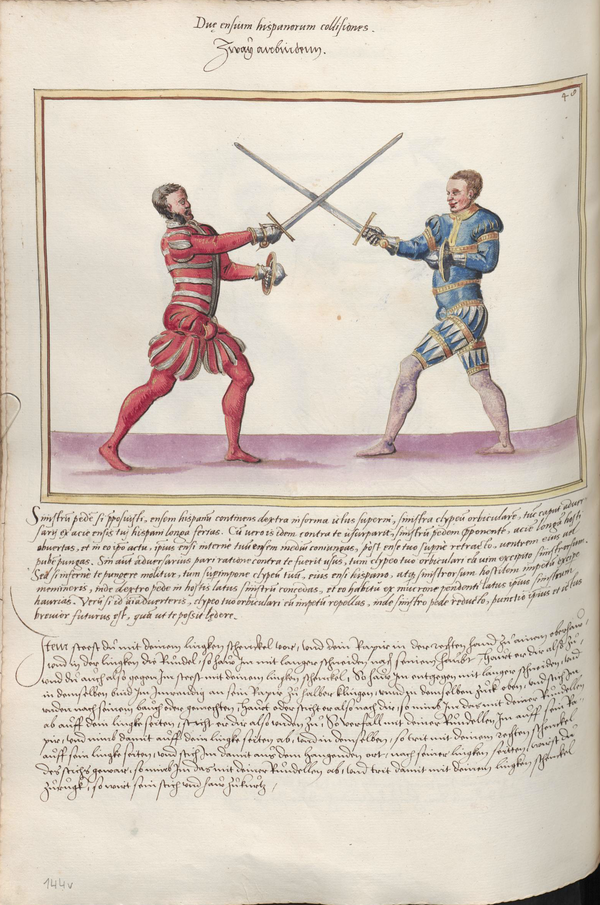 Duę ensium hispanorum collisiones.
Zway anbinden.
Sinistrũ pede si pposuisti, ensem hispanũ continens dextra in forma ictus superni, sinistra clypeũ orbiculare, tũc caput adver
sarij ex acie ensis tui hispani longa ferias. Cũ vero is idem contra te usurparit, sinistrũ pedem opponente, acie longa hosti
obvertas, et in eo ipo actu, ipsius ensi interne tuũ ensem mediũ coniungas, post ense tuo supne retracto, ventrem eius vel
pube pungas. Sin aũt adversarius pari ratione contra te fuerit usus, tum clypeo tuo orbiculari eũ uim excipito sinistrorsum.
Sed si inferne te pungere molitur, tum suprimpone clypeũ tuũ, eius ensi hispano, atq sinistrorsum hostilem impetũ excipe
memineris, inde dextro pede in hostis latus sinistrũ concedas, et ex habitu ex mucrone pendenti latus ipsius sinistrum
haurias. Verũ si id aĩadverteris, clypeo tuo orbiculari eũ impetũ repellas, inde sinistro pede reducto, punctio ipsius et ictus
brevior futurus est, quã ut te possit lędere.
Item steest du mit deinem lingken schenckel vor, und dein Rapier in der rechten hand zu ainem oberhaw,
und in der lingken die Rundel, so haw Im mit langer schneiden nach seinem haubt. Hawt er der also zů,
und du auch also gegen Im steest mit deinem lingken schenckel, So haw Im entgegen mit langer schneiden, und
in demselben bind Im Inwendig an sein Rapir zů halber klingen, und in demselben zuck oben, und stich Im
unden nach seinem bauch oder gemechten, Hawt oder sticht er also nach dir, so nim Im das mit deiner Rundellen
ab auff dein lingke seiten, sticht er dir also unden zů So verfall mit deiner Rundellen Im auff sein Ra,
pir, und nimb damit auff dein lingke seiten ab, und in demselben, so trit mit deinem rechten schenckel
auff sein lingke seiten, und stich Im damit aus dem hangenden ort, nach seiner lingken seiten, wirst du
des stichs gewar, so nimb Im das mit deiner Rundellen ab, und trit damit mit deinem lingken schenckel
zurugk, so wirt sein stich und haw zu kurtz,
144v